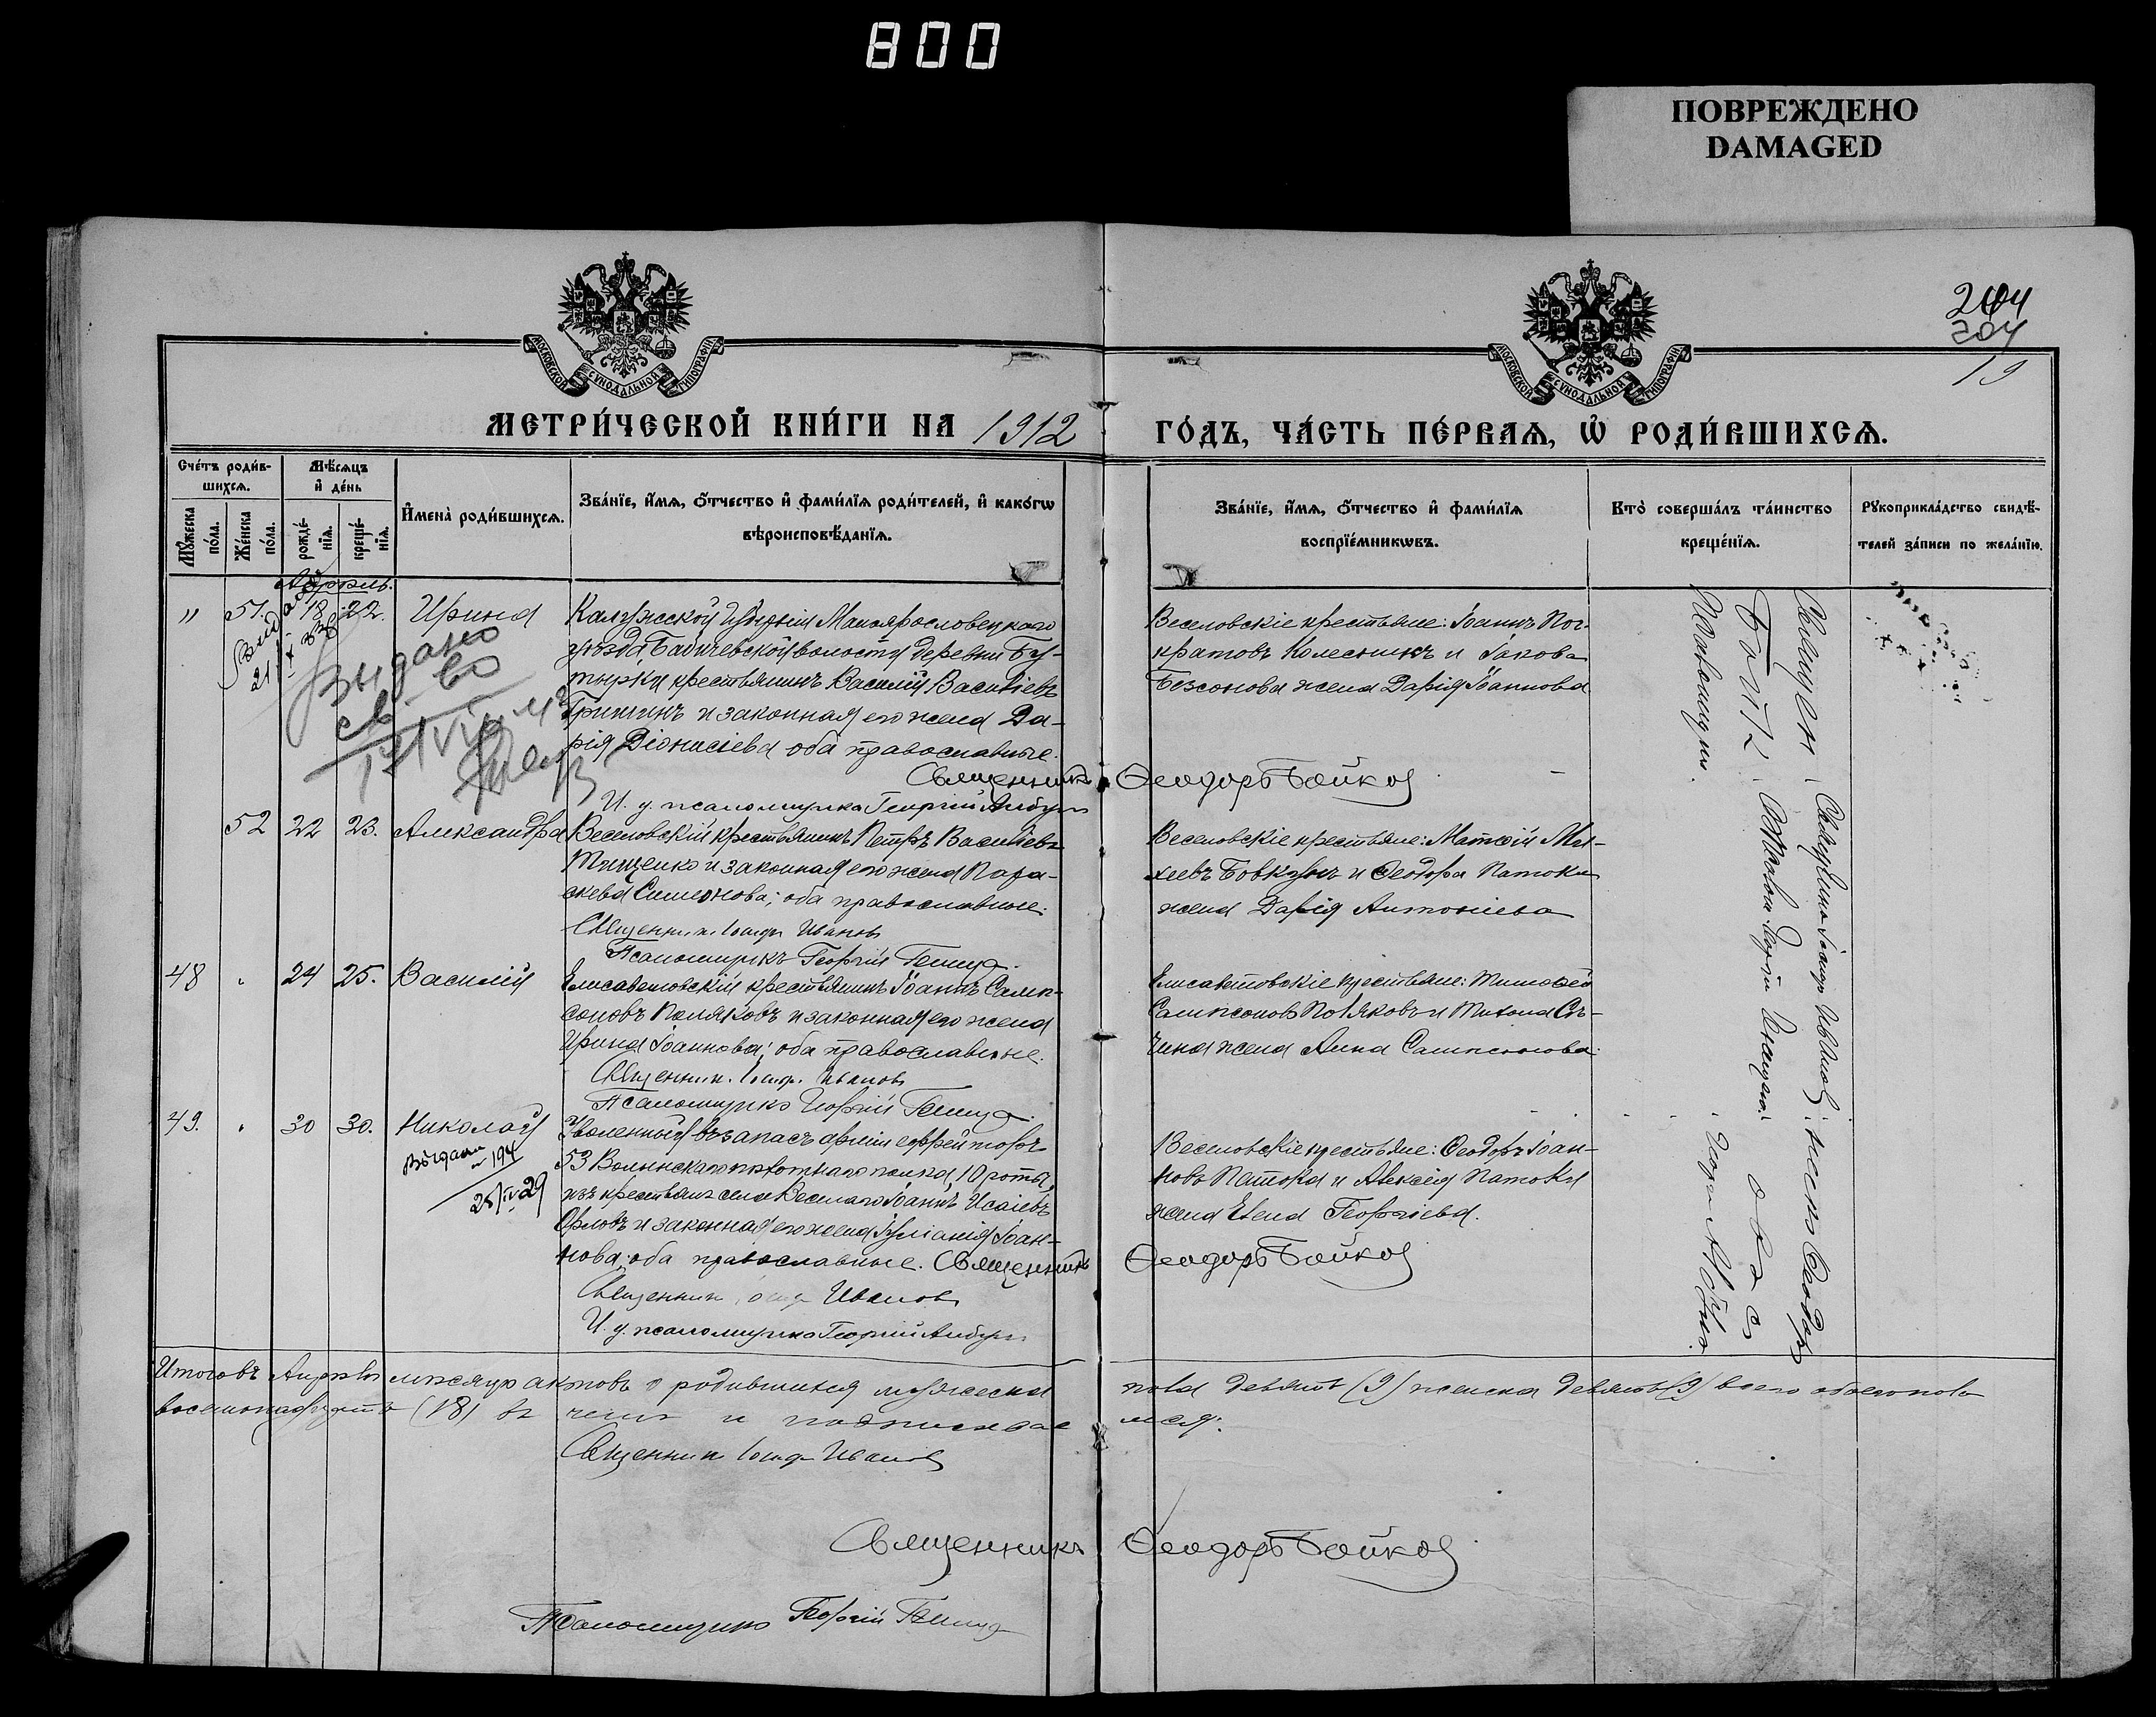 800
ПОВРЕЖДЕНО
DAMAGED
204
204
19
МОСКОВСКОЙ СѴНОДАЛЬНОЙ ТИПОГРАФІИ
МОСКОВСКОЙ СѴНОДАЛЬНОЙ ТИПОГРАФІИ
МЕТРИ́ЧЕСКОЙ КНИ́ГИ НА 1912 ГО́ДЪ, ЧА́СТЬ ПЕ́РВАѦ, Ѡ РОДИ́ВШИХСѦ.
Сче́тъ роди́в-
шихсѧ.
Мꙋ́жеска по́ла.
Же́нска по́ла.
Мѣ́сѧцъ
и҆ де́нь
рожде́-
нїѧ.
креще́-
нїѧ.
И҆мена̀ роди́вшихсѧ.
Зва́нїе, и҆́мѧ, ѻ҆́тчество и҆ фами́лїѧ роди́телей, и҆ како́гѡ
вѣроисповѣ́данїѧ.
Зва́нїе, и҆́мѧ, ѻ҆́тчество и҆ фами́лїѧ
воспрїе́мникѡвъ.
Кто̀ соверша́лъ та́инство
креще́нїѧ.
Рꙋкоприкла́дство свидѣ́-
телей за́писи по жела́нїю.
Апрѣль.
" 51. 18 22. Ирина
Калужской губерніи Малоярославецкаго
уѣзда, Бабичевской волости деревни Бу-
тырки крестьянинъ Василій Васильевъ
Гришинъ и законная его жена Да-
рія Діонисіева оба православные.
Священникъ Ѳеодоръ Бойков
И. д. псаломщика Георгій
Веселовскіе крестьяне: Іоаннъ
кратовъ Колесникъ и Іакова
Безсонова жена Дарія Іоаннова
Выдано
св-во
52 22 23. Александра
Веселовскій крестьянинъ Петръ Васильевъ
Тищенко и законная его жена Пара-
скева Симеонова; оба православные.
Священник Іосиф Иванов
Псаломщикъ Георгій
Веселовскіе крестьяне: Матѳій Ми-
хеевъ Бовкунъ и Ѳеодора Патоки
жена Дарія Антоніева
48 " 24 25. Василій
Елисаветовскій крестьянинъ Іоаннъ Самп-
соновъ Поляковъ и законная его жена
Ирина Іоаннова; оба православные.
Священник Іосиф Иванов
Псаломщикъ Георгій
Елисаветовскіе крестьяне: Тимоѳей
Сампсоновъ Поляковъ и Тихона Съ-
чина жена Анна Сампсонова.
49. " 30 30. Николай
Выдано
194
25/IV 29
Уволенный въ запасъ арміи ефрейторъ
53 Волынскаго пѣхотнаго полка, 10 роты,
изъ крестьянъ села Веселаго Іоаннъ Исаіевъ
Орловъ и законная его жена Іуліанія Іоан-
нова; оба православные. Священникъ Ѳеодоръ Бойков
Священник Іосиф Иванов
И. д. псаломщика Георгій
Веселовскіе крестьяне: Ѳеодоръ Іоан-
новъ Патока и Алексія Патоки
жена Елена Георгіева.
Итого въ Апрѣлѣ мѣсяцѣ актовъ о родившихся мужеска пола девять (9) женска девять (9) всего обоего пола
восемнадцать (18) въ чемъ и подписуемся.
Священник Іосиф Иванов
Священникъ Ѳеодоръ Бойков
Псаломщикъ Георгій